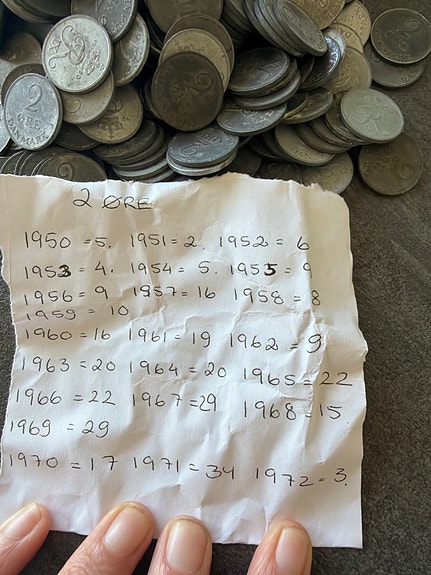 2
ØRE
DANMARK
2 ØRE
1950 = 5. 1951 = 2. 1952 = 6
1953 = 4. 1954 = 5. 1955 = 9
1956 = 9 1957 = 16 1958 = 8
1959 = 10
1960 = 16 1961 = 19 1962 = 9
1963 = 20 1964 = 20 1965 = 22
1966 = 22 1967 = 29 1968 = 15
1969 = 29
1970 = 17 1971 = 34 1972 = 3.